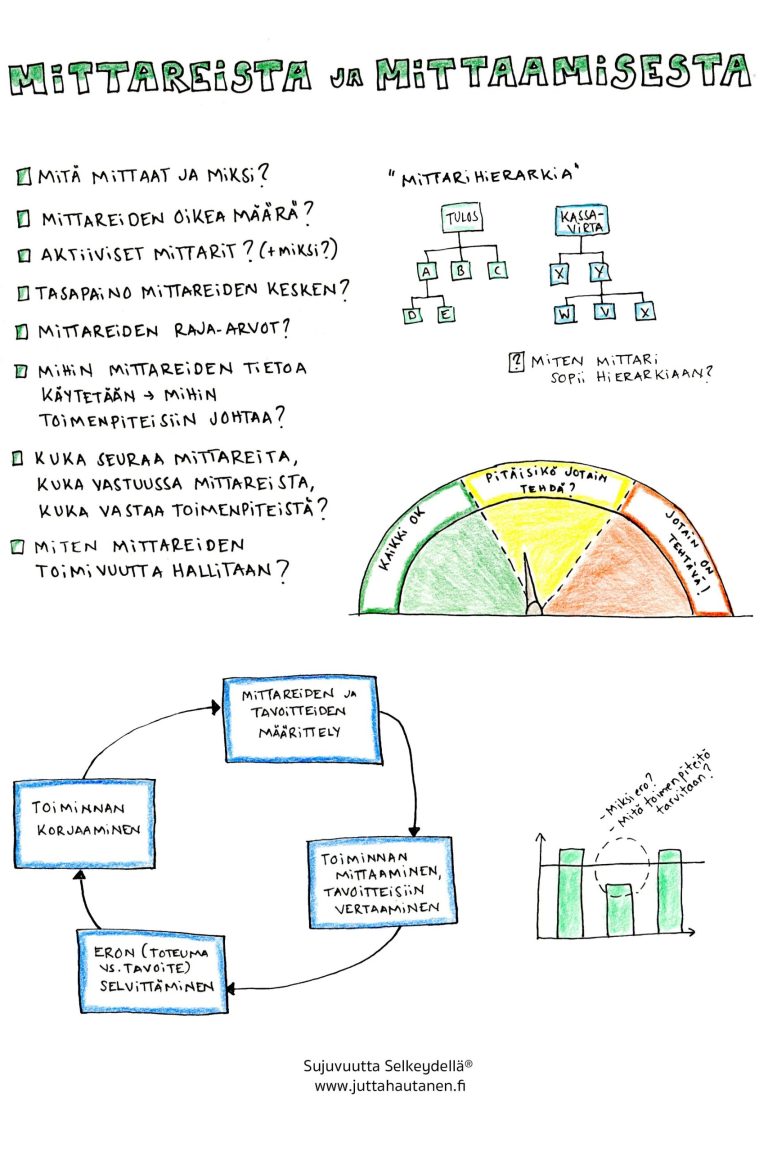 MITTAREISTA JA MITTAAMISESTA
MITÄ MITTAAT JA MIKSI?
MITTAREIDEN OIKEA MÄÄRÄ?
AKTIIVISET MITTARIT? (+MIKSI?)
TASAPAINO MITTAREIDEN KESKEN?
MITTAREIDEN RAJA-ARVOT?
MIHIN MITTAREIDEN TIETOA
KÄYTETÄÄN → MIHIN
TOIMENPITEISIIN JOHTAA?
KUKA SEURAA MITTAREITA,
KUKA VASTUUSSA MITTAREISTA,
KUKA VASTAA TOIMENPITEISTÄ?
MITEN MITTAREIDEN
TOIMIVUUTTA HALLITAAN?
"MITTARIHIERARKIA"
TULOS
A B C
D E
KASSA-
VIRTA
X Y
W V X
? MITEN MITTARI
SOPII HIERARKIAAN?
KAIKKI OK
PITÄISIKÖ JOTAIN
TEHDÄ?
JOTAIN ON
TEHTÄVÄ!
MITTAREIDEN JA
TAVOITTEIDEN
MÄÄRITTELY
TOIMINNAN
MITTAAMINEN,
TAVOITTEISIIN
VERTAAMINEN
ERON (TOTEUMA
VS. TAVOITE)
SELVITTÄMINEN
TOIMINNAN
KORJAAMINEN
- Miksi ero?
- Mitä toimenpiteitö
tarvitaan?
Sujuvuutta Selkeydellä®
www.juttahautanen.fi